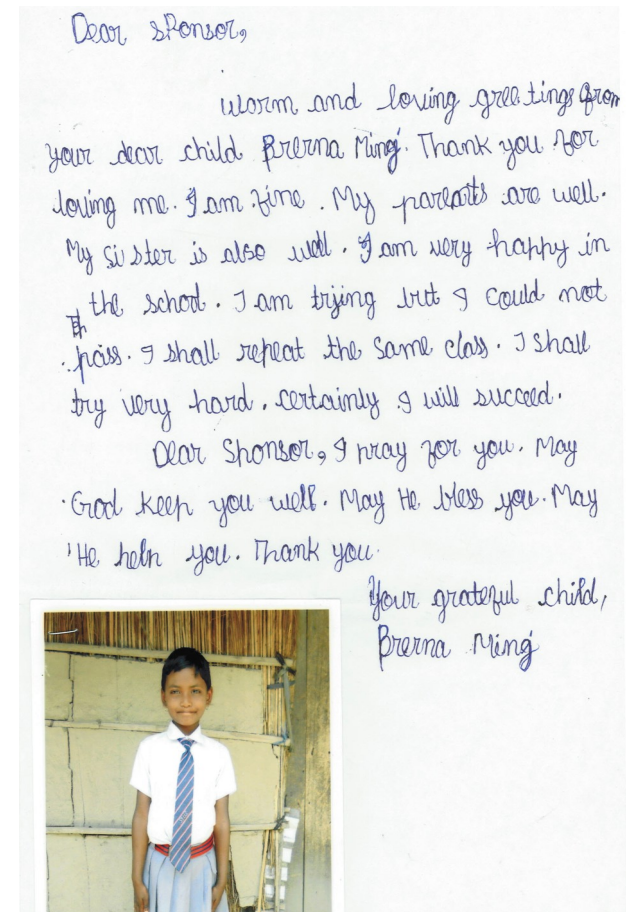 Dear Sponsor,
Warm and loving greetings from
your dear child Prerna Minj. Thank you for
loving me. I am fine. My parents are well.
My sister is also well. I am very happy in
the school. I am trying but I could not
pass. I shall repeat the same class. I shall
try very hard. certainly I will succeed.
Dear Sponsor, I pray for you. May
God keep you well. May He bless you. May
He help you. Thank you.
Your grateful child,
Prerna Minj